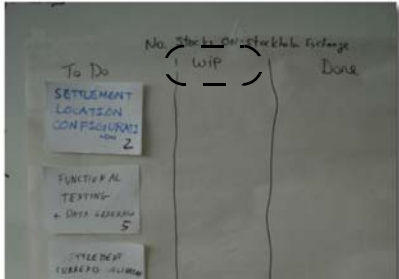 No. Stocks on Stockholm Exchange
To Do
WIP
Done
SETTLEMENT
LOCATION
CONFIGURATI
-ON
2
FUNCTIONAL
TESTING
+ DATA
5
SETTLEMENT
CURRENCY